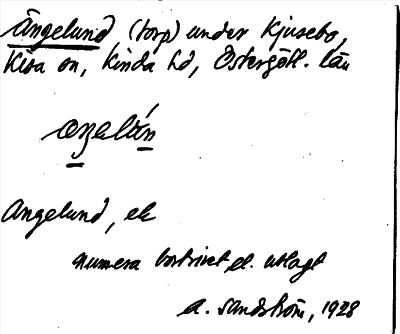 Ängelund (torp) under Kjusebo,
Kisa sn, Kinda hd, Östergötl. län
Angelund, ek
numera bortrivet el. utlagt
A. Sandström, 1928